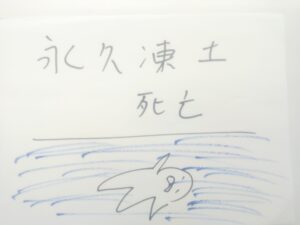 永久凍土
死亡